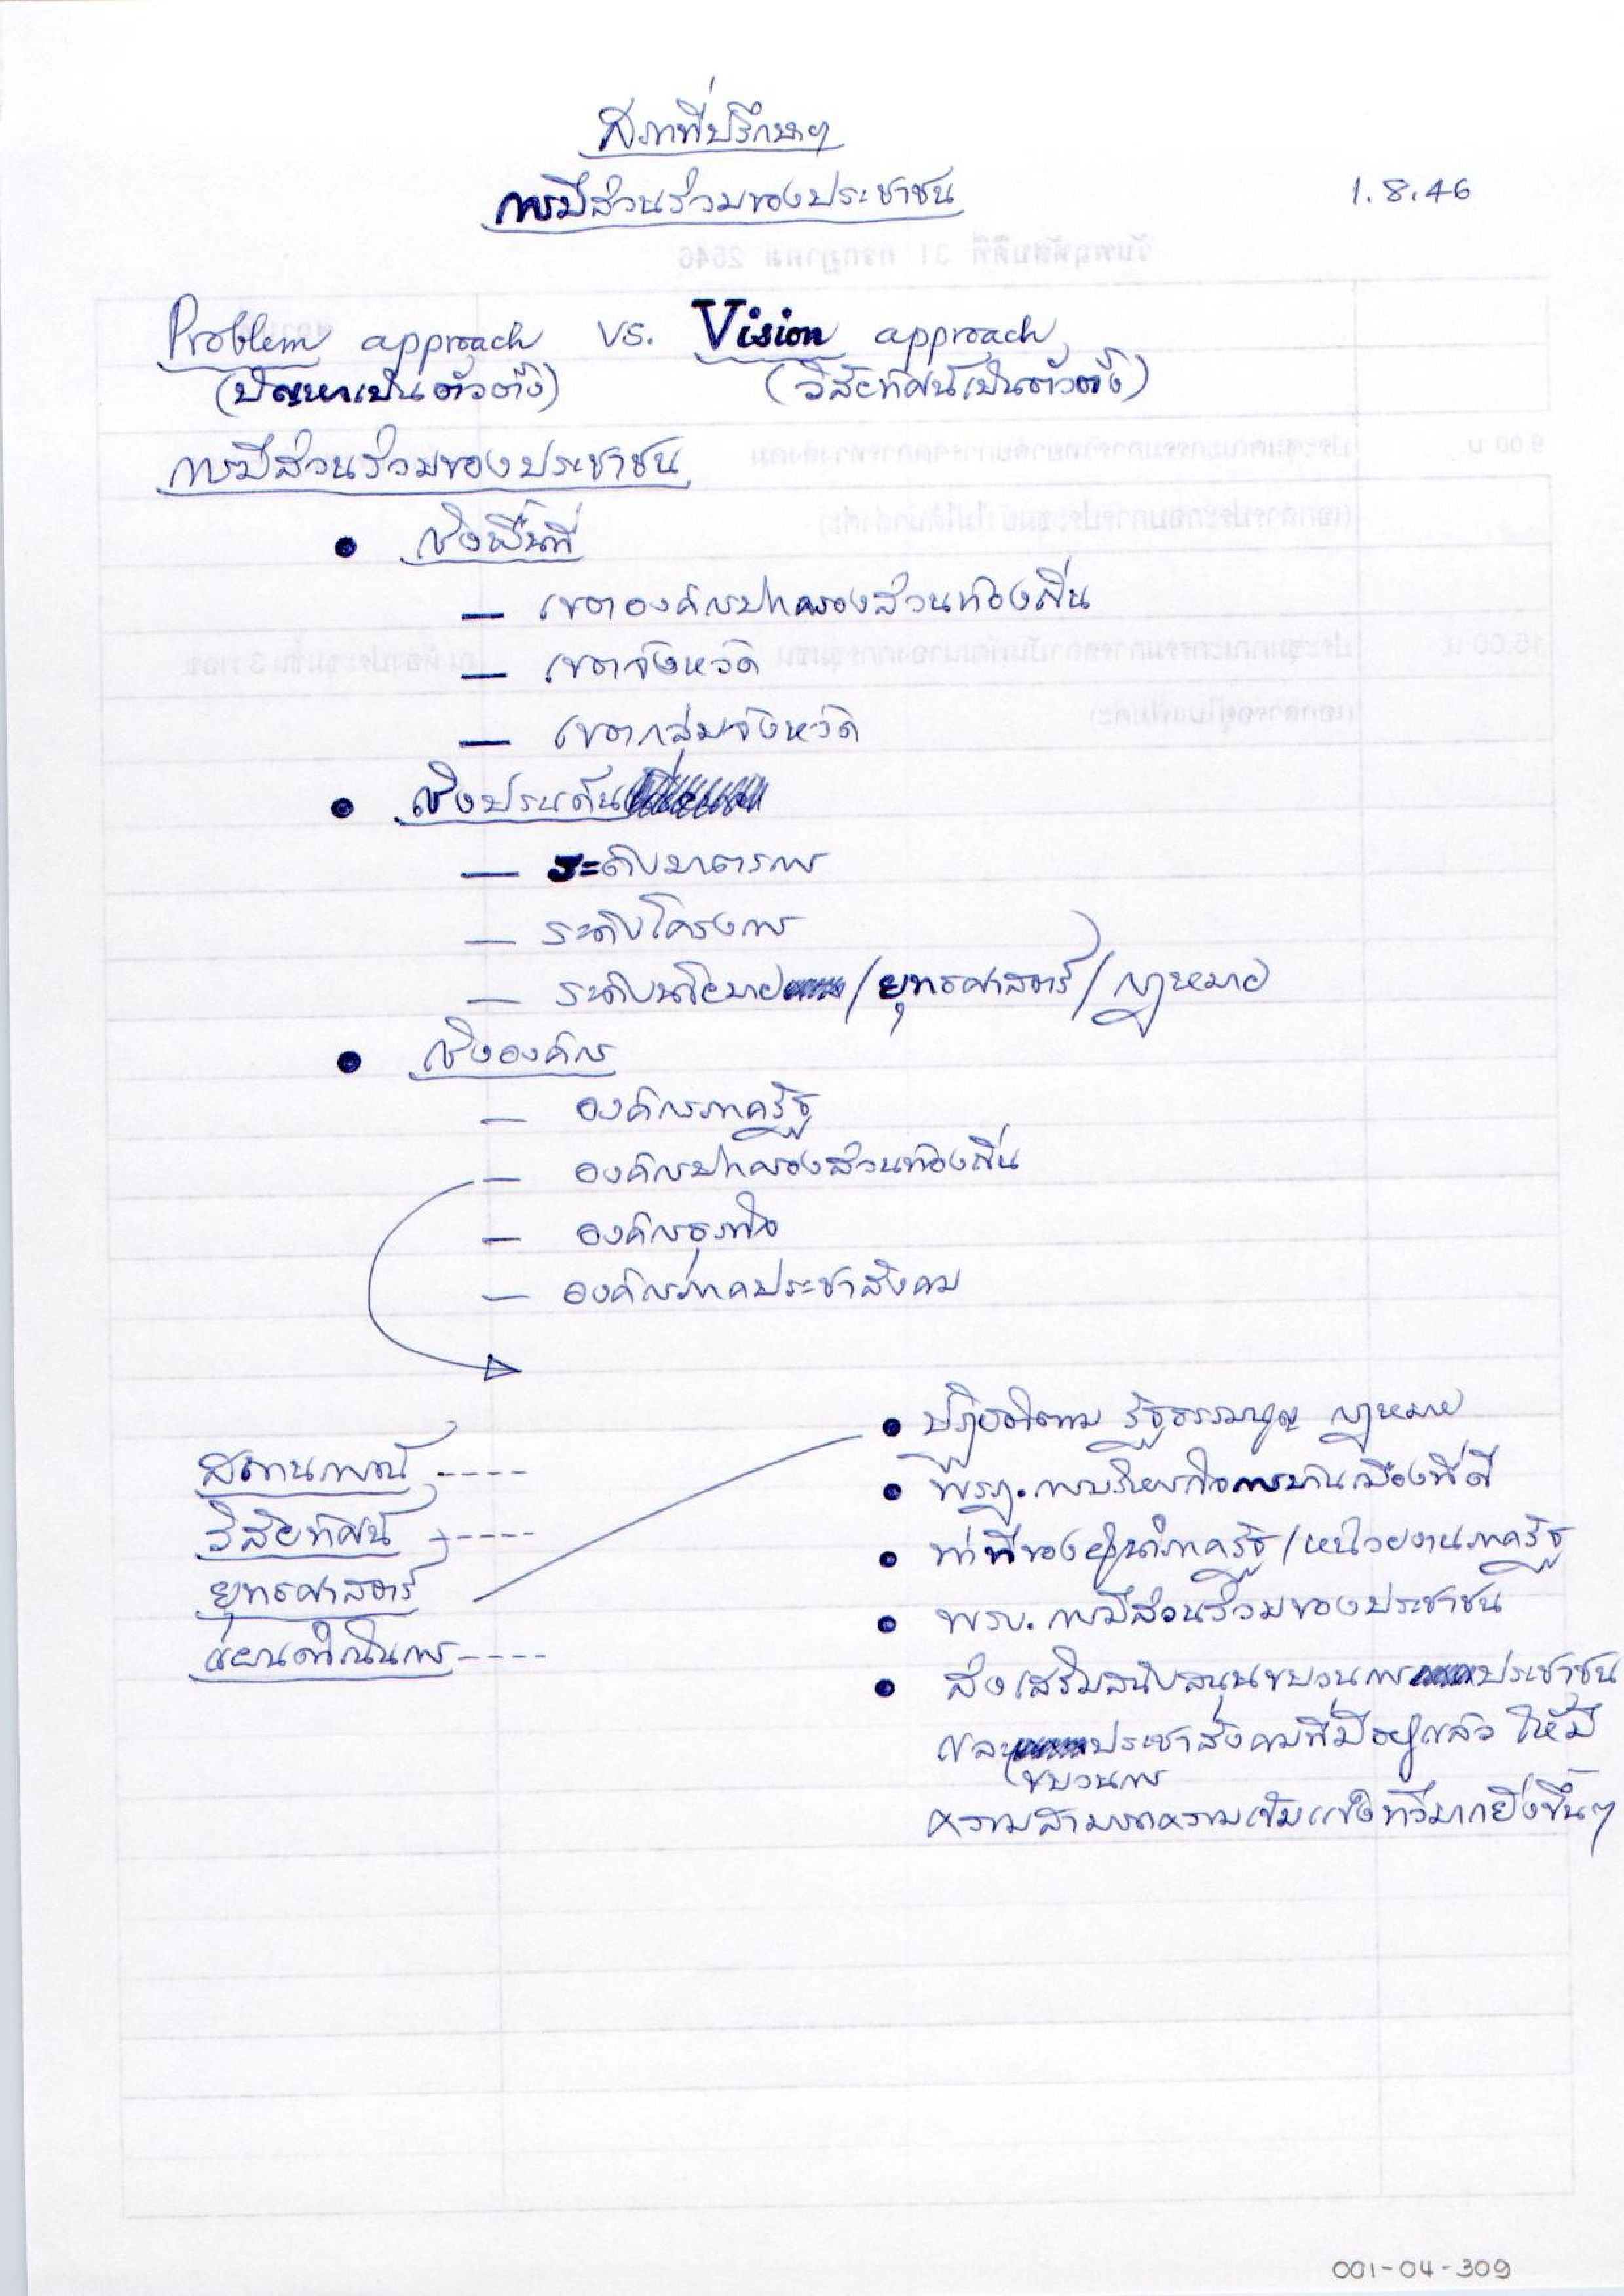 สภาที่ปรึกษาฯ
การมีส่วนร่วมของประชาชน
1.8.46
Problem approach VS. Vision approach
(ปัญหาเป็นตัวตั้ง) (วิสัยทัศน์เป็นตัวตั้ง)
การมีส่วนร่วมของประชาชน
• เชิงพื้นที่
— เขตองค์กรปกครองส่วนท้องถิ่น
— เขตจังหวัด
— เขตกลุ่มจังหวัด
• เชิงประเด็น
— ระดับมาตรการ
— ระดับโครงการ
— ระดับนโยบาย/ยุทธศาสตร์/กฎหมาย
• เชิงองค์กร
— องค์กรภาครัฐ
— องค์กรปกครองส่วนท้องถิ่น
— องค์กรธุรกิจ
— องค์กรภาคประชาสังคม
สถานการณ์ ----
วิสัยทัศน์ ----
ยุทธศาสตร์
แผนดำเนินการ ----
• ปฏิบัติตาม รัฐธรรมนูญ กฎหมาย
• พรฎ.การบริหารกิจการบ้านเมืองที่ดี
• ท่าทีของผู้นำภาครัฐ/หน่วยงานภาครัฐ
• พรบ. การมีส่วนร่วมของประชาชน
• ส่งเสริมสนับสนุนขบวนการประชาชน
และขบวนการประชาสังคมที่มีอยู่แล้ว ให้มี
ความสามารถความเข้มแข็งทวีมากยิ่งขึ้นๆ
001-04-309